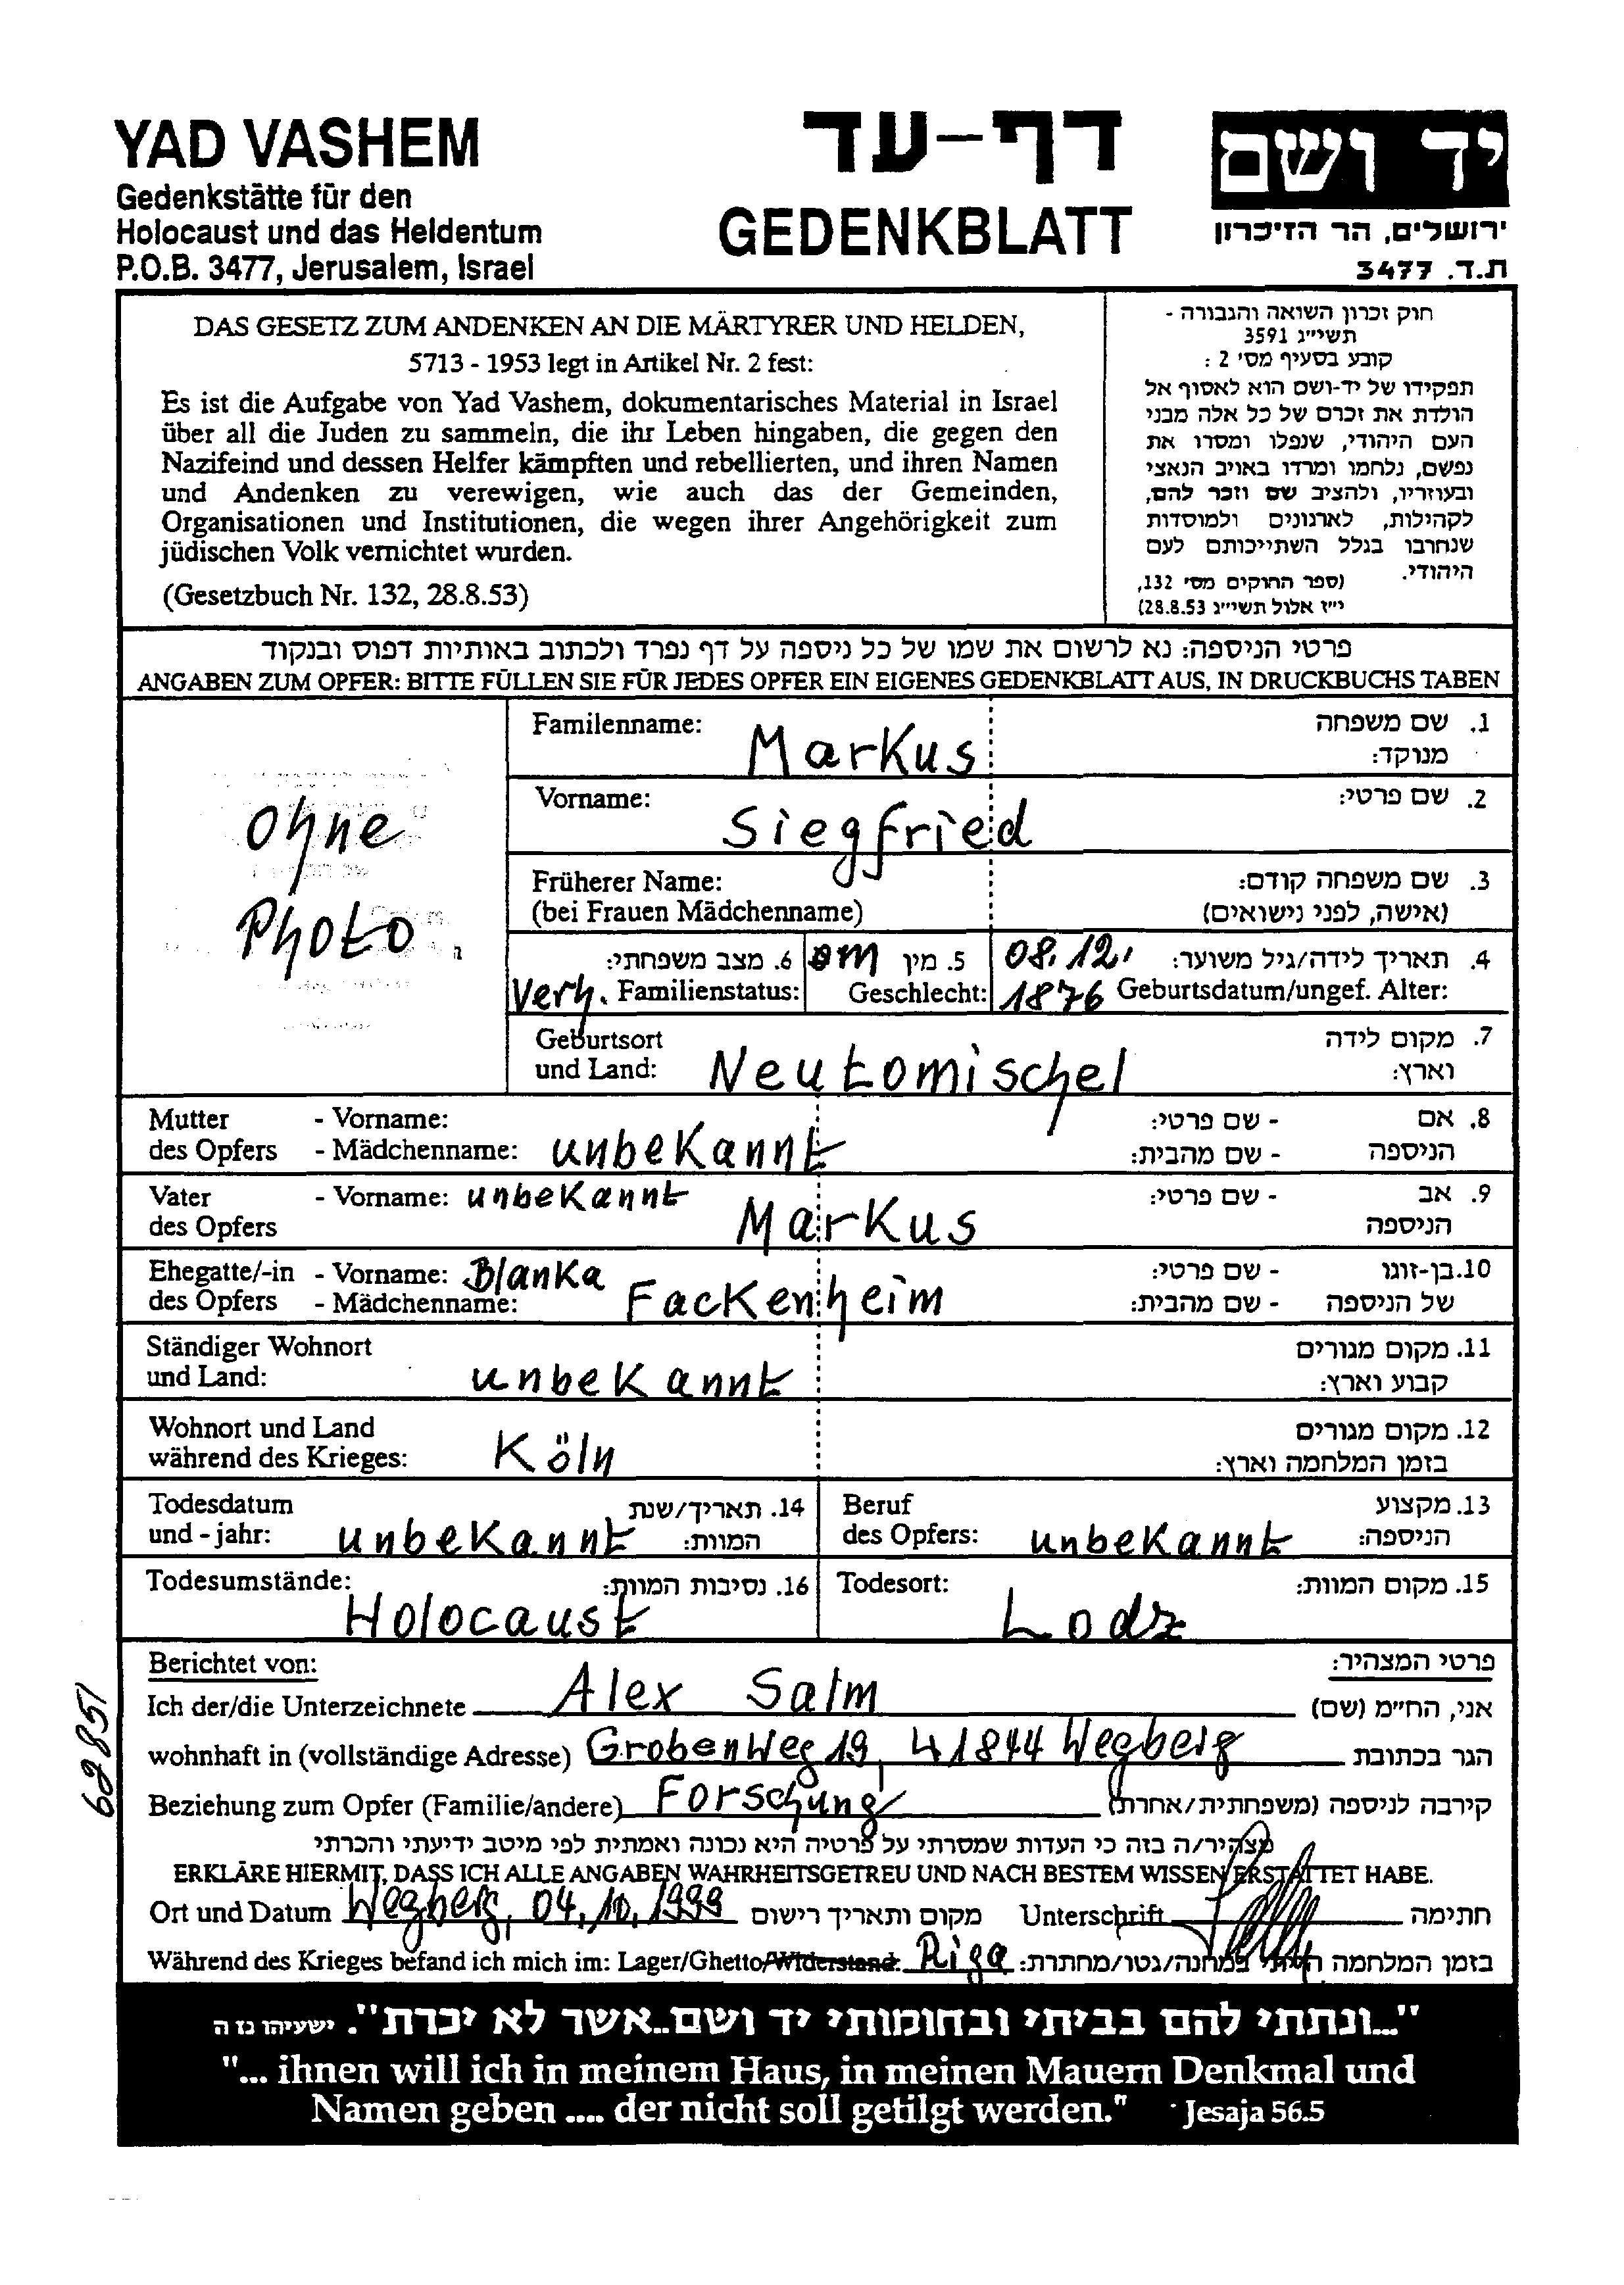 YAD VASHEM
Gedenkstätte für den
Holocaust und das Heldentum
P.O.B. 3477, Jerusalem, Israel
דף-עד
GEDENKBLATT
יד ושם
ירושלים, הר הזיכרון
ת.ד. 3477
DAS GESETZ ZUM ANDENKEN AN DIE MÄRTYRER UND HELDEN,
5713 - 1953 legt in Artikel Nr. 2 fest:
Es ist die Aufgabe von Yad Vashem, dokumentarisches Material in Israel
über all die Juden zu sammeln, die ihr Leben hingaben, die gegen den
Nazifeind und dessen Helfer kämpften und rebellierten, und ihren Namen
und Andenken zu verewigen, wie auch das der Gemeinden,
Organisationen und Institutionen, die wegen ihrer Angehörigkeit zum
jüdischen Volk vernichtet wurden.
(Gesetzbuch Nr. 132, 28.8.53)
חוק זכרון השואה והגבורה -
תשי״ג 3591
קובע בסעיף מס׳ 2 :
תפקידו של יד-ושם הוא לאסוף אל
הולדת את זכרם של כל אלה מבני
העם היהודי, שנפלו ומסרו את
נפשם, נלחמו ומרדו באויב הנאצי
ובעוזריו, ולהציב שם וזכר להם,
לקהילות, לארגונים ולמוסדות
שנחרבו בגלל השתייכותם לעם
היהודי.
(ספר החוקים מס׳ 132,
י״ז אלול תשי״ג 28.8.53)
פרטי הניספה: נא לרשום את שמו של כל ניספה על דף נפרד ולכתוב באותיות דפוס ובנקוד
ANGABEN ZUM OPFER: BITTE FÜLLEN SIE FÜR JEDES OPFER EIN EIGENES GEDENKBLATT AUS, IN DRUCKBUCHS TABEN
Ohne
Photo
Familenname: Markus 1. שם משפחה
מנוקד:
Vorname: Siegfried 2. שם פרטי:
Früherer Name: 3. שם משפחה קודם:
(bei Frauen Mädchenname) (אישה, לפני נישואים)
6. מצב משפחתי: 5. מין m 08.12. 4. תאריך לידה/גיל משוער:
verh. Familienstatus: Geschlecht: 1876 Geburtsdatum/ungef. Alter:
Geburtsort 7. מקום לידה
und Land: Neutomischel וארץ:
Mutter - Vorname: - שם פרטי: 8. אם
des Opfers - Mädchenname: unbekannt - שם מהבית: הניספה
Vater - Vorname: unbekannt - שם פרטי: 9. אב
des Opfers Markus הניספה
Ehegatte/-in - Vorname: Blanka - שם פרטי: 10. בן-זוגו
des Opfers - Mädchenname: Fackenheim - שם מהבית: של הניספה
Ständiger Wohnort 11. מקום מגורים
und Land: unbekannt קבוע וארץ:
Wohnort und Land 12. מקום מגורים
während des Krieges: Köln בזמן המלחמה וארץ:
Todesdatum 14. תאריך/שנת Beruf 13. מקצוע
und - jahr: unbekannt המוות: des Opfers: unbekannt הניספה:
Todesumstände: Holocaust 16. נסיבות המוות: Todesort: Lodz 15. מקום המוות:
Berichtet von: פרטי המצהיר:
Ich der/die Unterzeichnete Alex Salm אני, הח״מ (שם)
wohnhaft in (vollständige Adresse) Grobenweg 19, 41844 Wegberg הגר בכתובת
Beziehung zum Opfer (Familie/andere) Forschung קירבה לניספה (משפחתית/אחרת)
מצהיר/ה בזה כי העדות שמסרתי על פרטיה היא נכונה ואמתית לפי מיטב ידיעתי והכרתי
ERKLÄRE HIERMIT, DASS ICH ALLE ANGABEN WAHRHEITSGETREU UND NACH BESTEM WISSEN ERSTATTET HABE.
Ort und Datum Wegberg, 04.10.1999 מקום ותאריך רישום Unterschrift חתימה
Während des Krieges befand ich mich im: Lager/Ghetto/Widerstand: Riga בזמן המלחמה הייתי במחנה/גטו/מחתרת:
62851
"...ונתתי להם בביתי ובחומותי יד ושם..אשר לא יכרת". ישעיהו נז ה
"... ihnen will ich in meinem Haus, in meinen Mauern Denkmal und
Namen geben .... der nicht soll getilgt werden." Jesaja 56.5